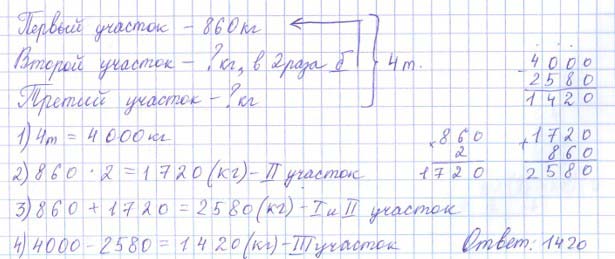 Первый участок – 860 кг
Второй участок – ? кг, в 2 раза б
4 т.
Третий участок – ? кг
4000
- 2580
1420
1) 4 т = 4000 кг
2) 860 · 2 = 1720 (кг) – II участок
× 860
2
1720
+ 1720
860
2580
3) 860 + 1720 = 2580 (кг) – I и II участок
4) 4000 – 2580 = 1420 (кг) – III участок
Ответ: 1420